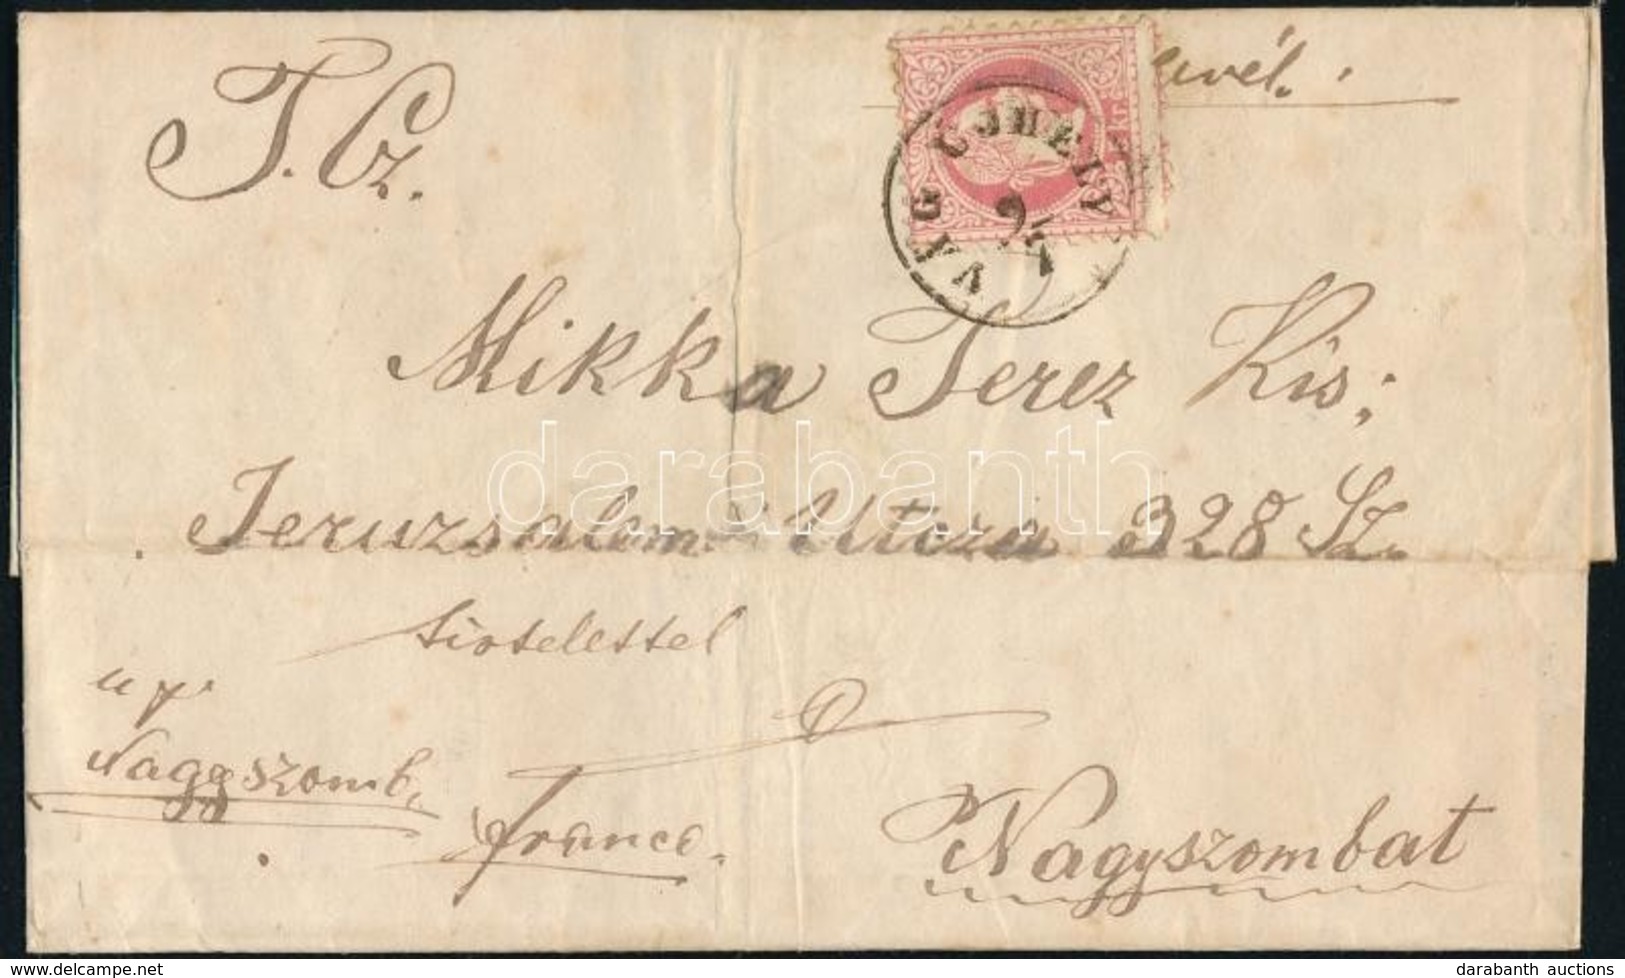 T. Cz.
levél.
VÁG UJHELY
9/7
Mikka Terez Kis:
Jeruzsalem Utcza 328 Sz.
tisztelettel
u. p.
Nagyszomb.
Franco.
Nagyszombat
darabanth
delcampe.net
darabanth auctions